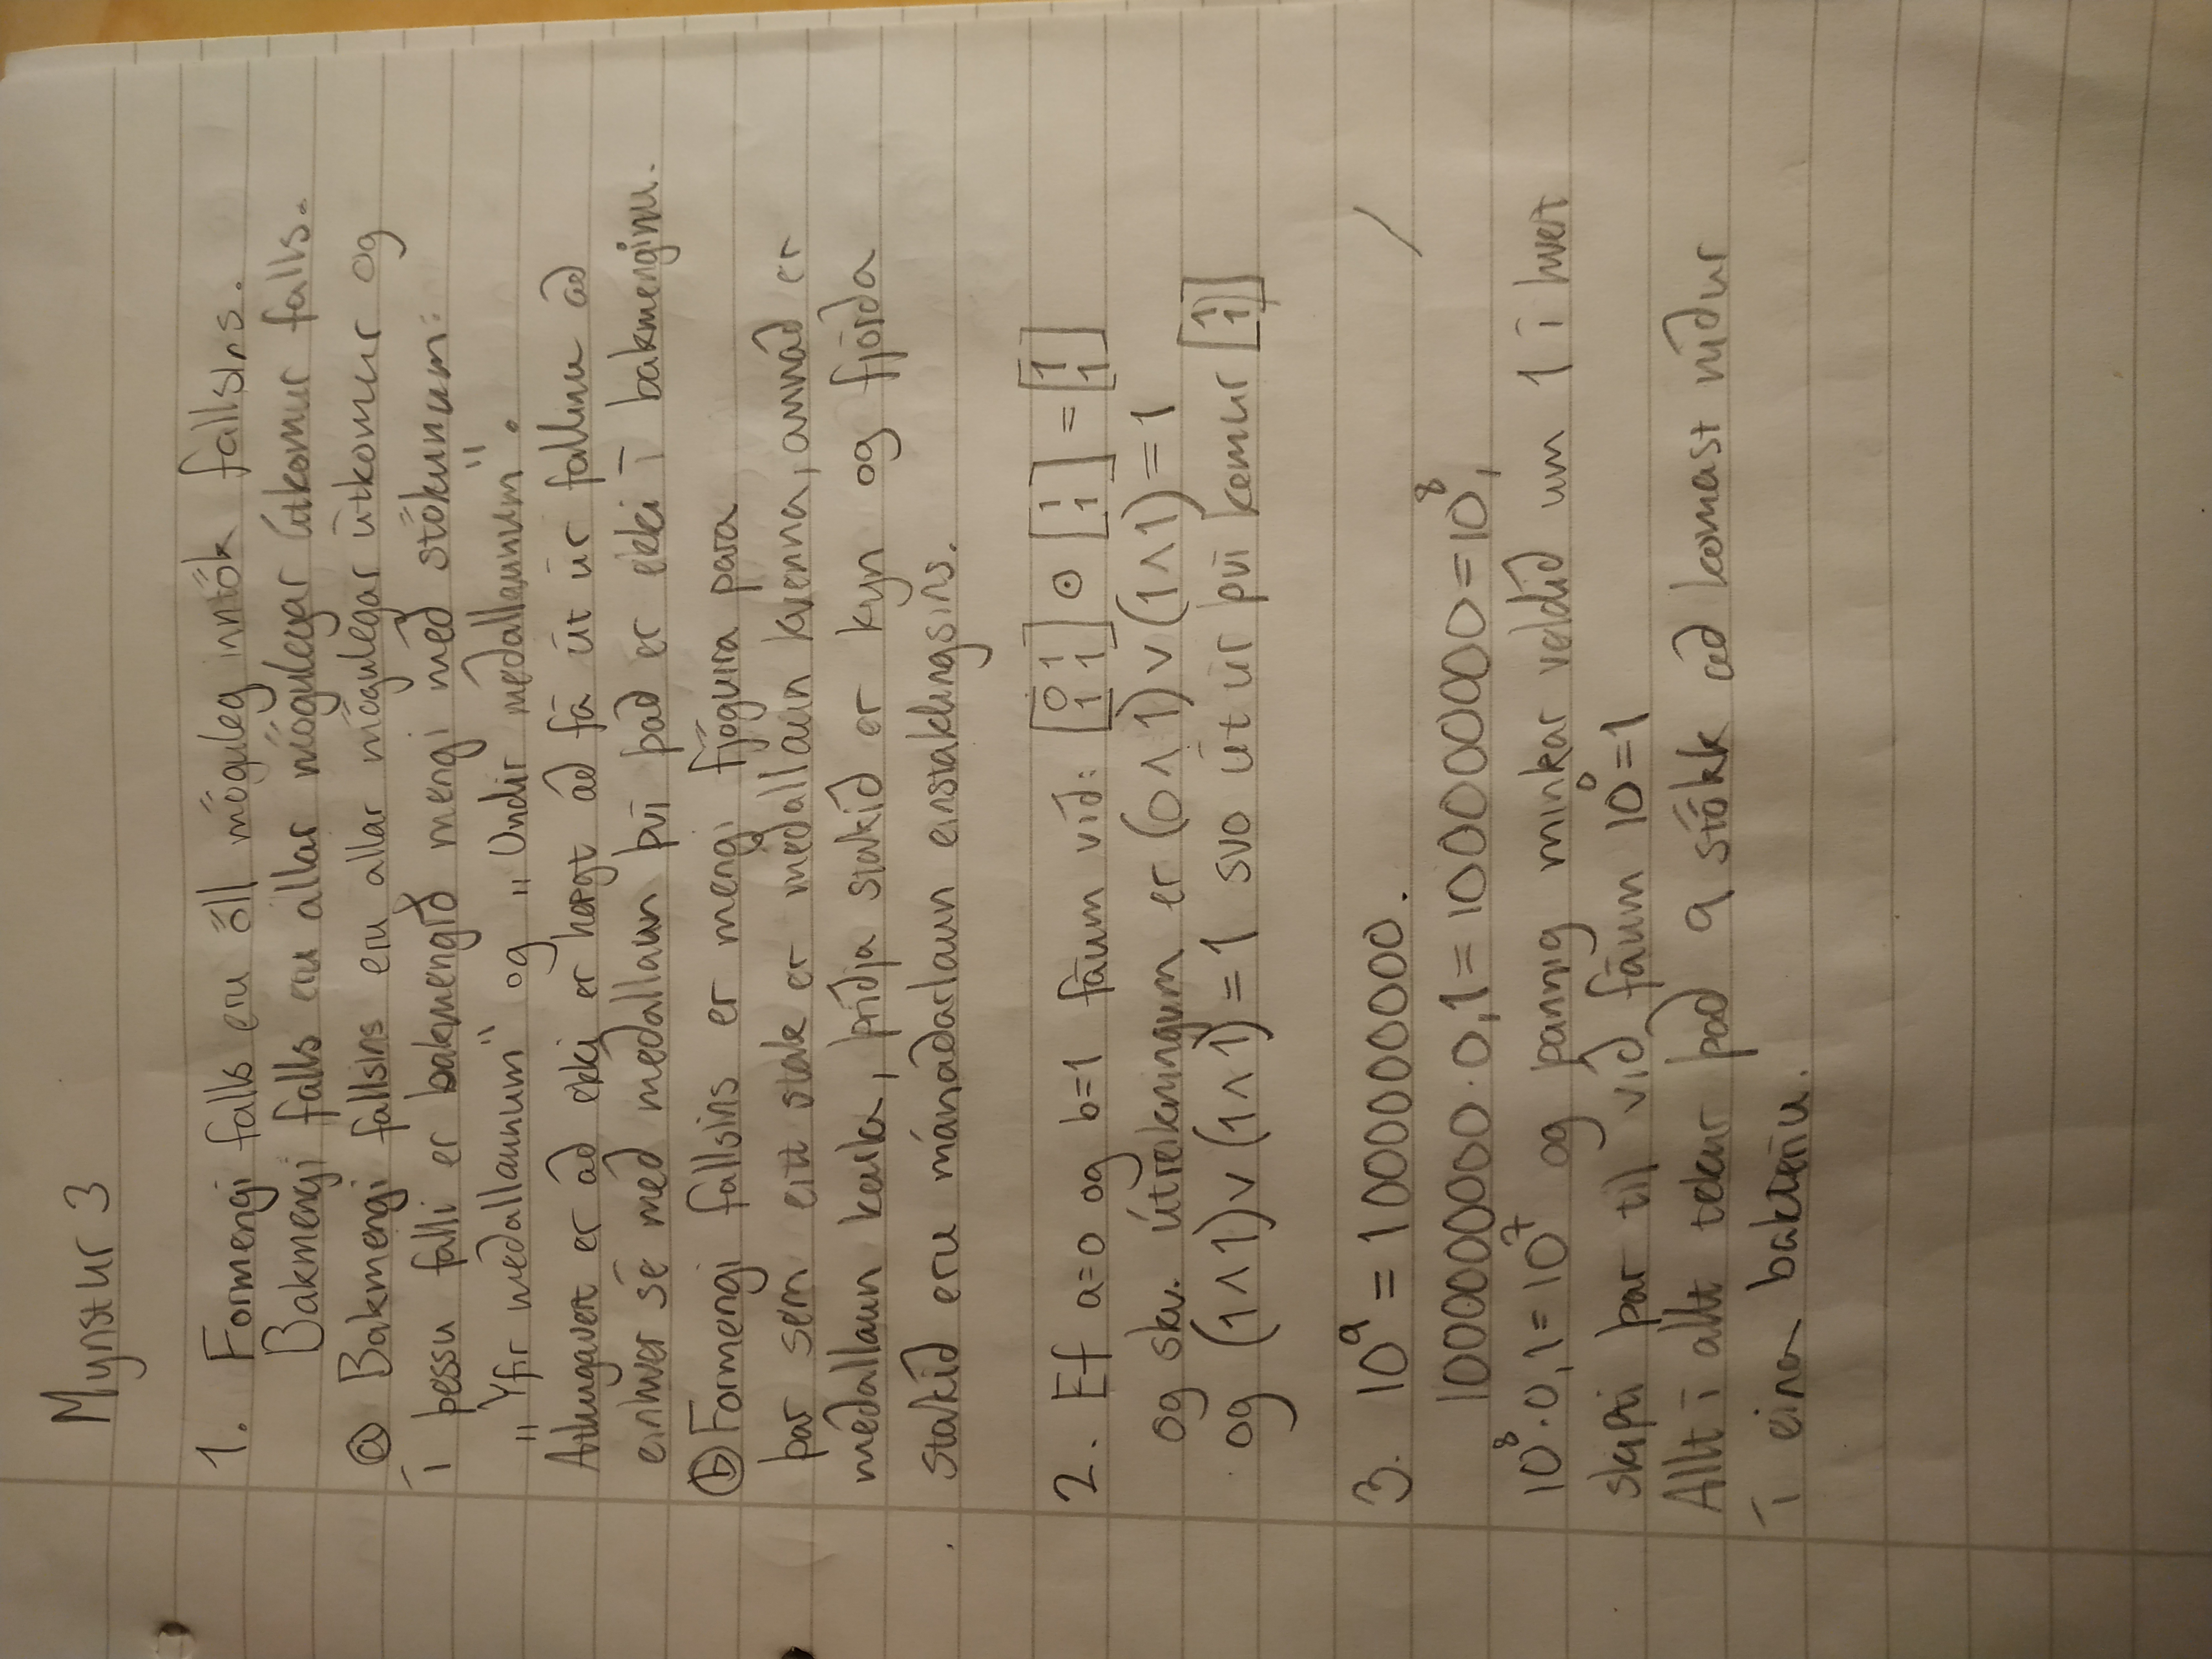 Mynstur 3
1. Formengi falls eru öll möguleg inntök fallsins.
Bakmengi falls eru allar mögulegar útkomur falls.
ⓐ Bakmengi fallsins eru allar mögulegar útkomur og
í þessu falli er bakmengið mengi með stökunum:
„Yfir meðallaunum" og „Undir meðallaunum".
Athugavert er að ekki er hægt að fá út úr fallinu að
einhver sé með meðallaun því það er ekki í bakmenginu.
ⓑ Formengi fallsins er mengi fjögurra para
þar sem eitt stak er meðallaun kvenna, annað er
meðallaun karla, þriðja stakið er kyn og fjórða
stakið eru mánaðarlaun einstaklingsins.
2. Ef a=0 og b=1 fáum við: [0 1 / 1 1] ⊙ [1 / 1] = [1 / 1]
og skv. útreikningum er (0∧1)∨(1∧1)=1
og (1∧1)∨(1∧1)=1 svo út úr því kemur [1 / 1]
3. 10⁹ = 1000000000.
1000000000·0,1=100000000=10⁸,
10⁸·0,1=10⁷ og þannig minkar veldið um 1 í hvert
skipti þar til við fáum 10⁰=1
Allt í allt tekur það 9 stökk að komast niður
í eina bakteríu.